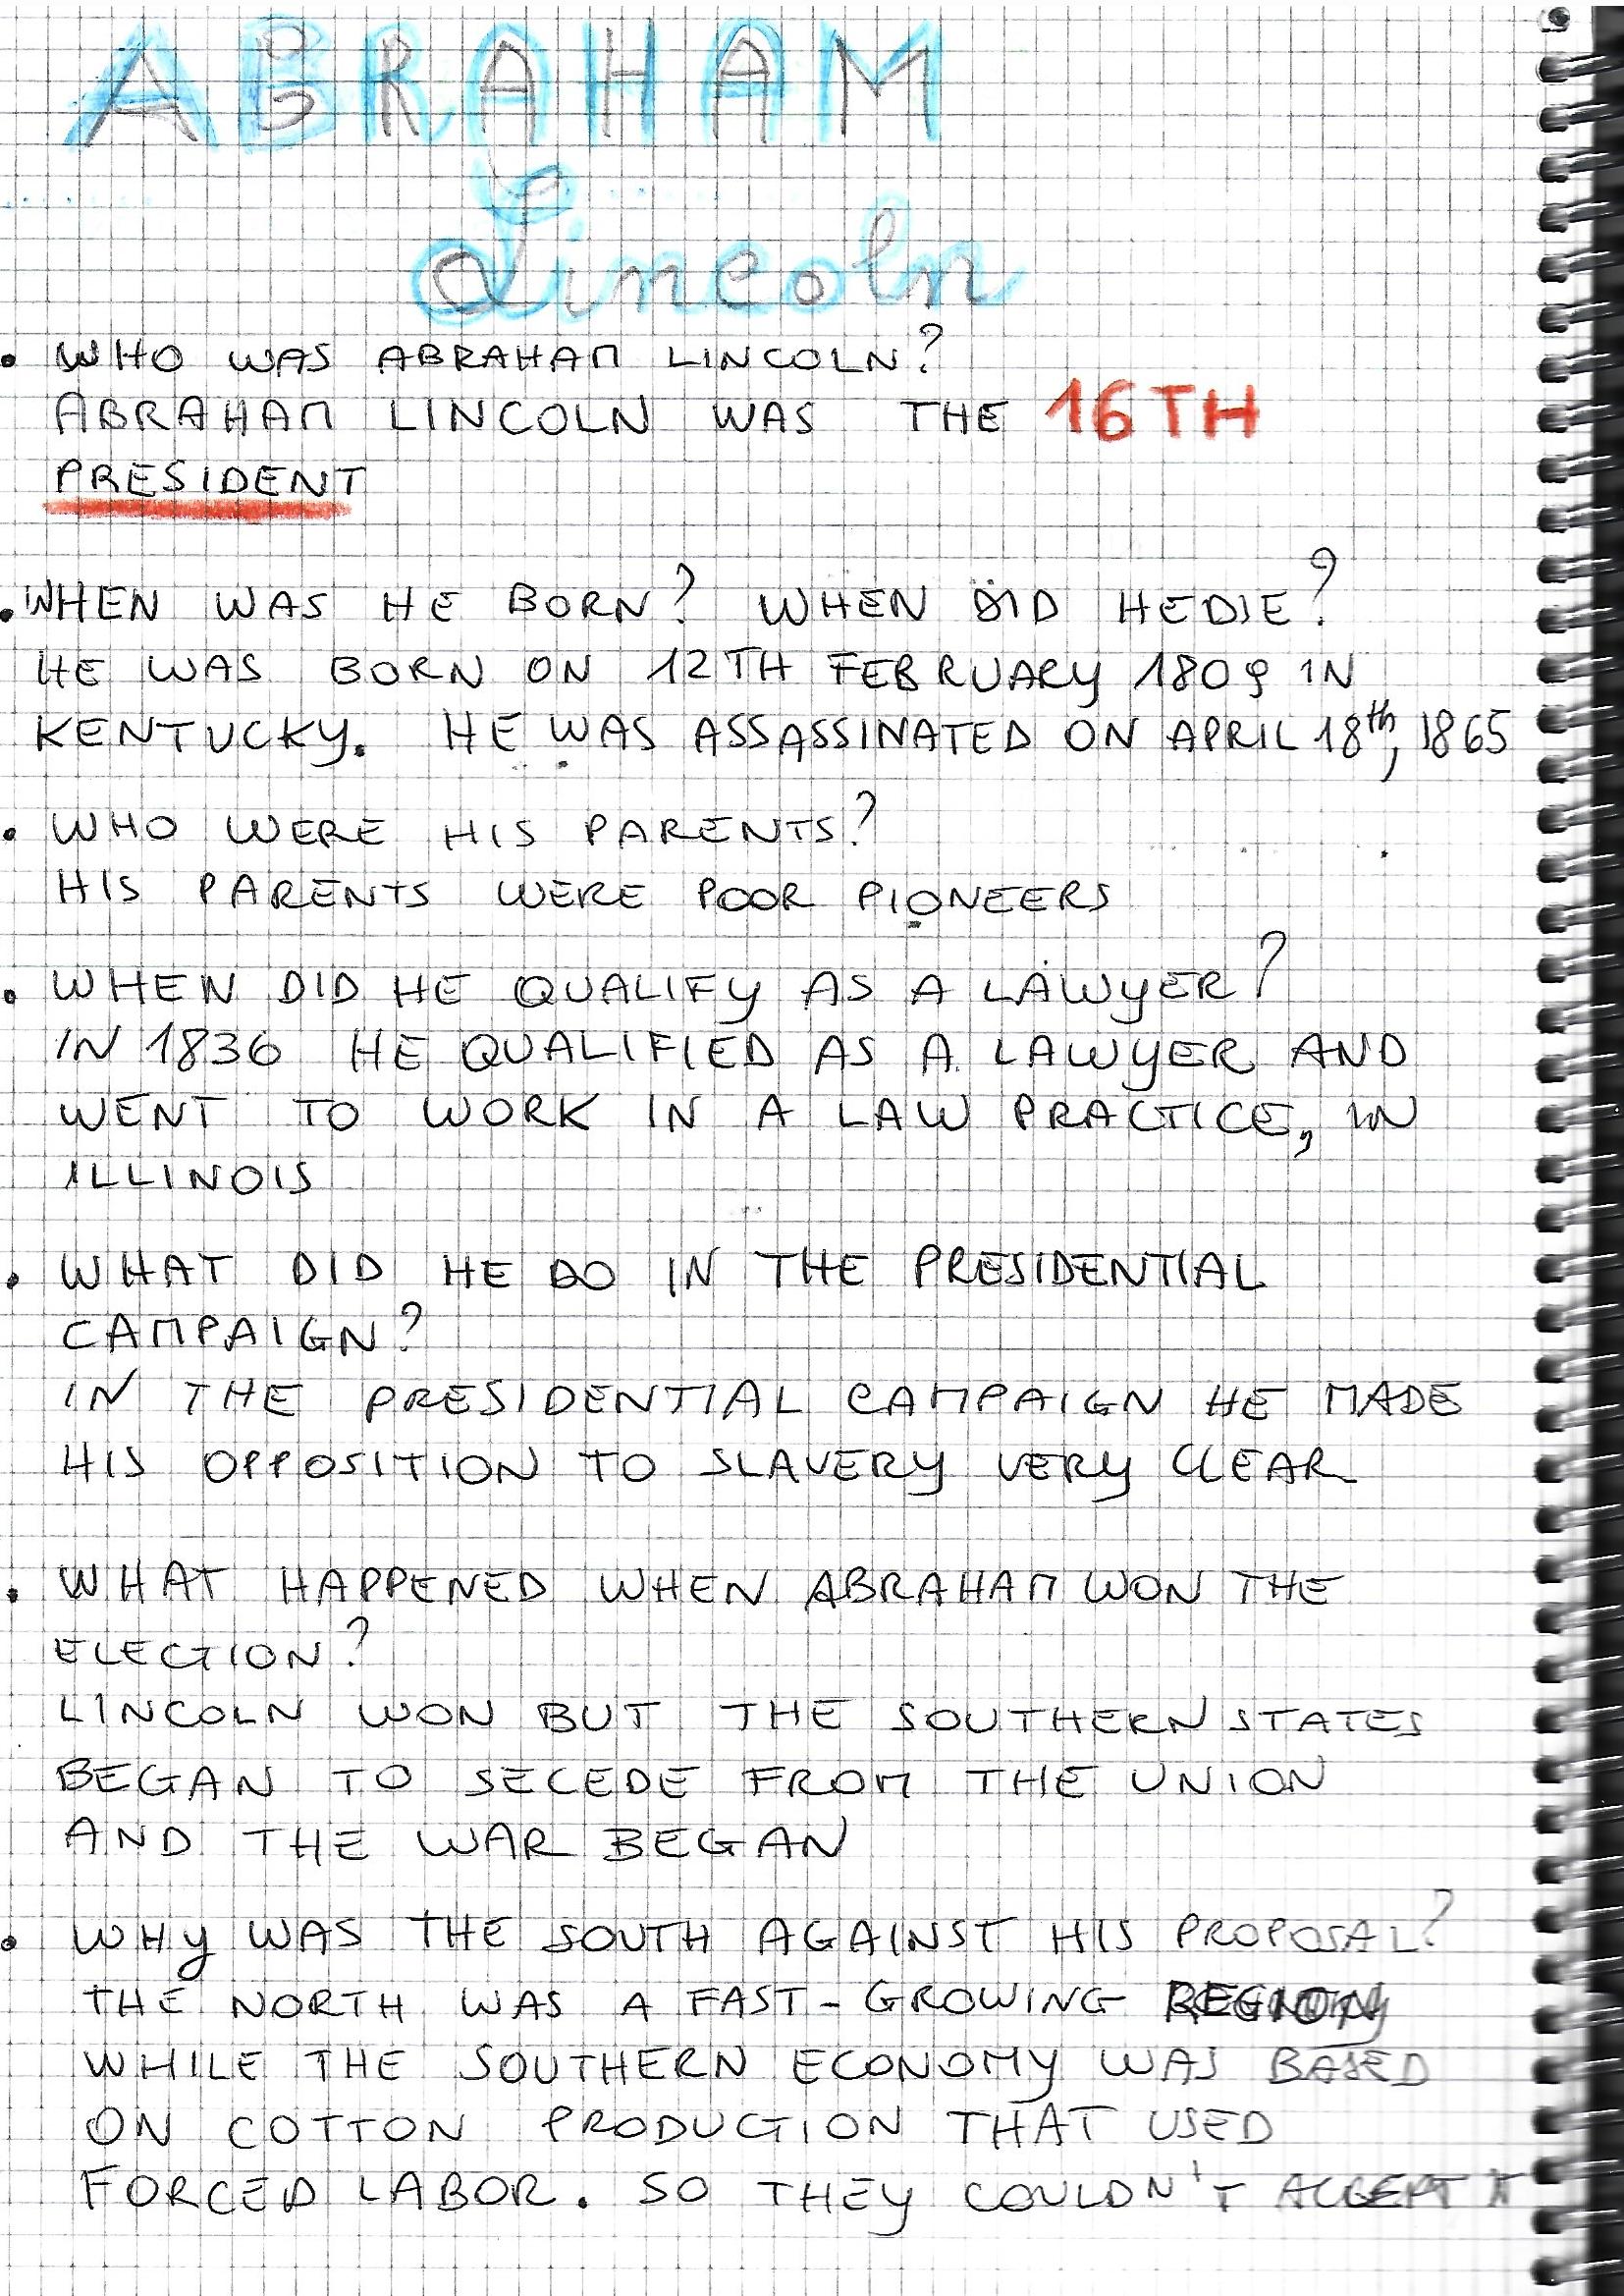 ABRAHAM
Lincoln
• WHO WAS ABRAHAM LINCOLN?
ABRAHAM LINCOLN WAS THE 16TH
PRESIDENT
• WHEN WAS HE BORN? WHEN DID HE DIE?
HE WAS BORN ON 12TH FEBRUARY 1809 IN
KENTUCKY. HE WAS ASSASSINATED ON APRIL 18th, 1865
• WHO WERE HIS PARENTS?
HIS PARENTS WERE POOR PIONEERS
• WHEN DID HE QUALIFY AS A LAWYER?
IN 1836 HE QUALIFIED AS A LAWYER AND
WENT TO WORK IN A LAW PRACTICE, IN
ILLINOIS
• WHAT DID HE DO IN THE PRESIDENTIAL
CAMPAIGN?
IN THE PRESIDENTIAL CAMPAIGN HE MADE
HIS OPPOSITION TO SLAVERY VERY CLEAR
• WHAT HAPPENED WHEN ABRAHAM WON THE
ELECTION?
LINCOLN WON BUT THE SOUTHERN STATES
BEGAN TO SECEDE FROM THE UNION
AND THE WAR BEGAN
• WHY WAS THE SOUTH AGAINST HIS PROPOSAL?
THE NORTH WAS A FAST-GROWING REGION
WHILE THE SOUTHERN ECONOMY WAS BASED
ON COTTON PRODUCTION THAT USED
FORCED LABOR. SO THEY COULDN'T ACCEPT IT